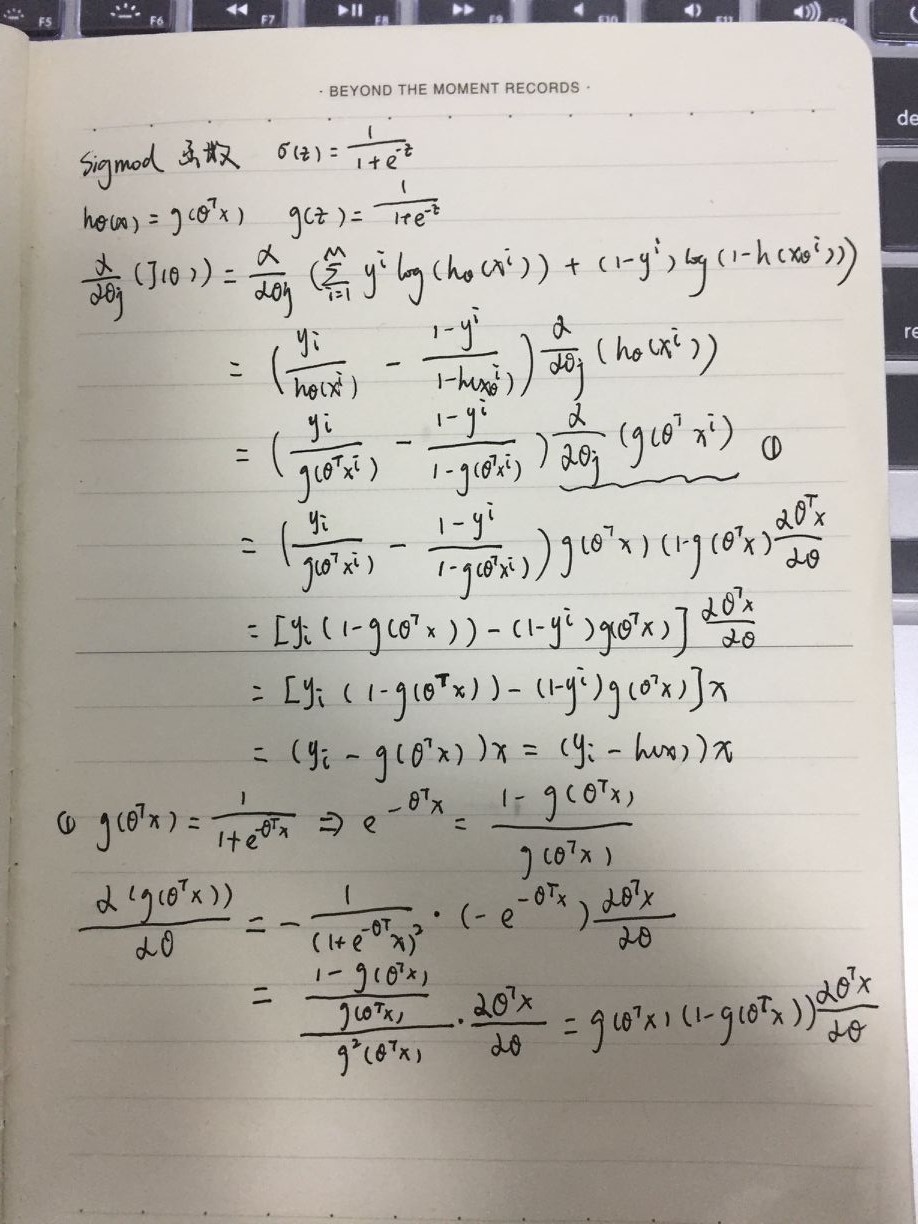 F5 F6 F7 F8 F9 F10 F11 F12
de
re
· BEYOND THE MOMENT RECORDS ·
Sigmod 函数 σ(z) = 1/(1+e^{-z})
hθ(x) = g(θ^T x) g(z) = 1/(1+e^{-z})
∂/∂θj (J(θ)) = ∂/∂θj (∑_{i=1}^{M} y^i log(hθ(x^i)) + (1-y^i) log(1-h(xθ^i)))
= (yi/hθ(x^i) - (1-y^i)/(1-h(xθ^i))) ∂/∂θj (hθ(x^i))
= (yi/g(θ^T x^i) - (1-y^i)/(1-g(θ^T x^i))) ∂/∂θj (g(θ^T x^i) ①
= (yi/g(θ^T x^i) - (1-y^i)/(1-g(θ^T x^i))) g(θ^T x) (1-g(θ^T x) ∂θ^T x/∂θ
= [yi (1-g(θ^T x)) - (1-y^i) g(θ^T x)] ∂θ^T x/∂θ
= [yi (1-g(θ^T x)) - (1-y^i) g(θ^T x)] x
= (yi - g(θ^T x)) x = (yi - h(x)) x
① g(θ^T x) = 1/(1+e^{-θ^T x}) ⇒ e^{-θ^T x} = (1-g(θ^T x))/g(θ^T x)
∂(g(θ^T x))/∂θ = - 1/(1+e^{-θ^T x})^2 · (-e^{-θ^T x}) ∂θ^T x/∂θ
= ((1-g(θ^T x))/g(θ^T x))/g^2(θ^T x) · ∂θ^T x/∂θ = g(θ^T x) (1-g(θ^T x)) ∂θ^T x/∂θ